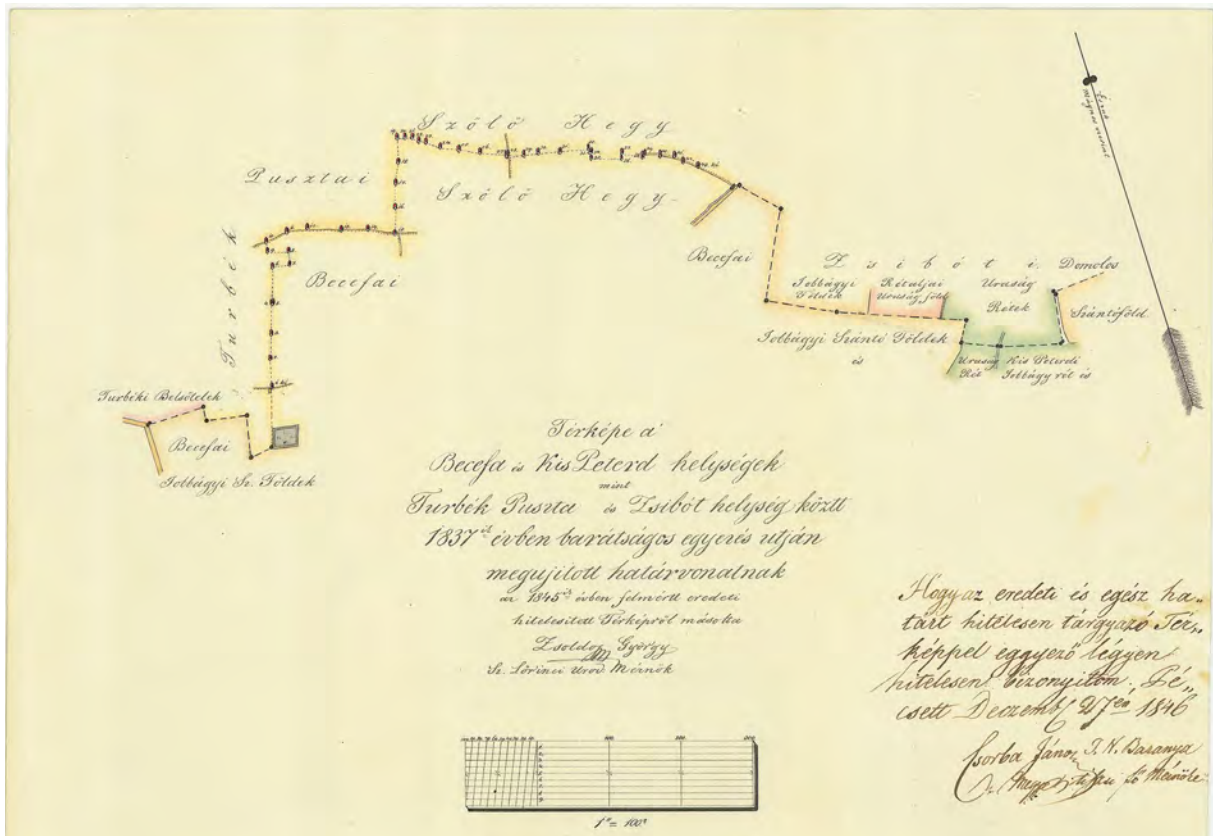 Szőlő Hegy
Pusztai
Szőlő Hegy
Turbék
Becefai
Becefai
Zsibóti
Domolos
Jobbágyi Földek
Rétaljai Uraság föld
Uraság Rétek
Szántóföld
Jobbágyi Szántó Földek
és
Uraság Rét
Kis Peterdi
Jobbágy rét és
Turbéki Belsőtelek
Becefai
Jobbágyi Sz. Földek
Térképe a'
Becefa és Kis Peterd helységek
mint
Turbék Puszta és Zsibót helység köztt
1837ik évben barátságos egyezés utján
megujitott határvonalnak
az 1845ik évben felmértt eredeti
hitelesitett Térképről másolta
Zsoldos György
Sz. Lőrinci Urod. Mérnök
Hogy az eredeti és egész ha„
tárt hitelesen tárgyazó Tér„
képpel eggyező légyen
hitelesen bizonyitom. Pé„
csett Deczemb 27én 1846
Csorba János T. N. Baranya
Mérnöke
1" = 100°